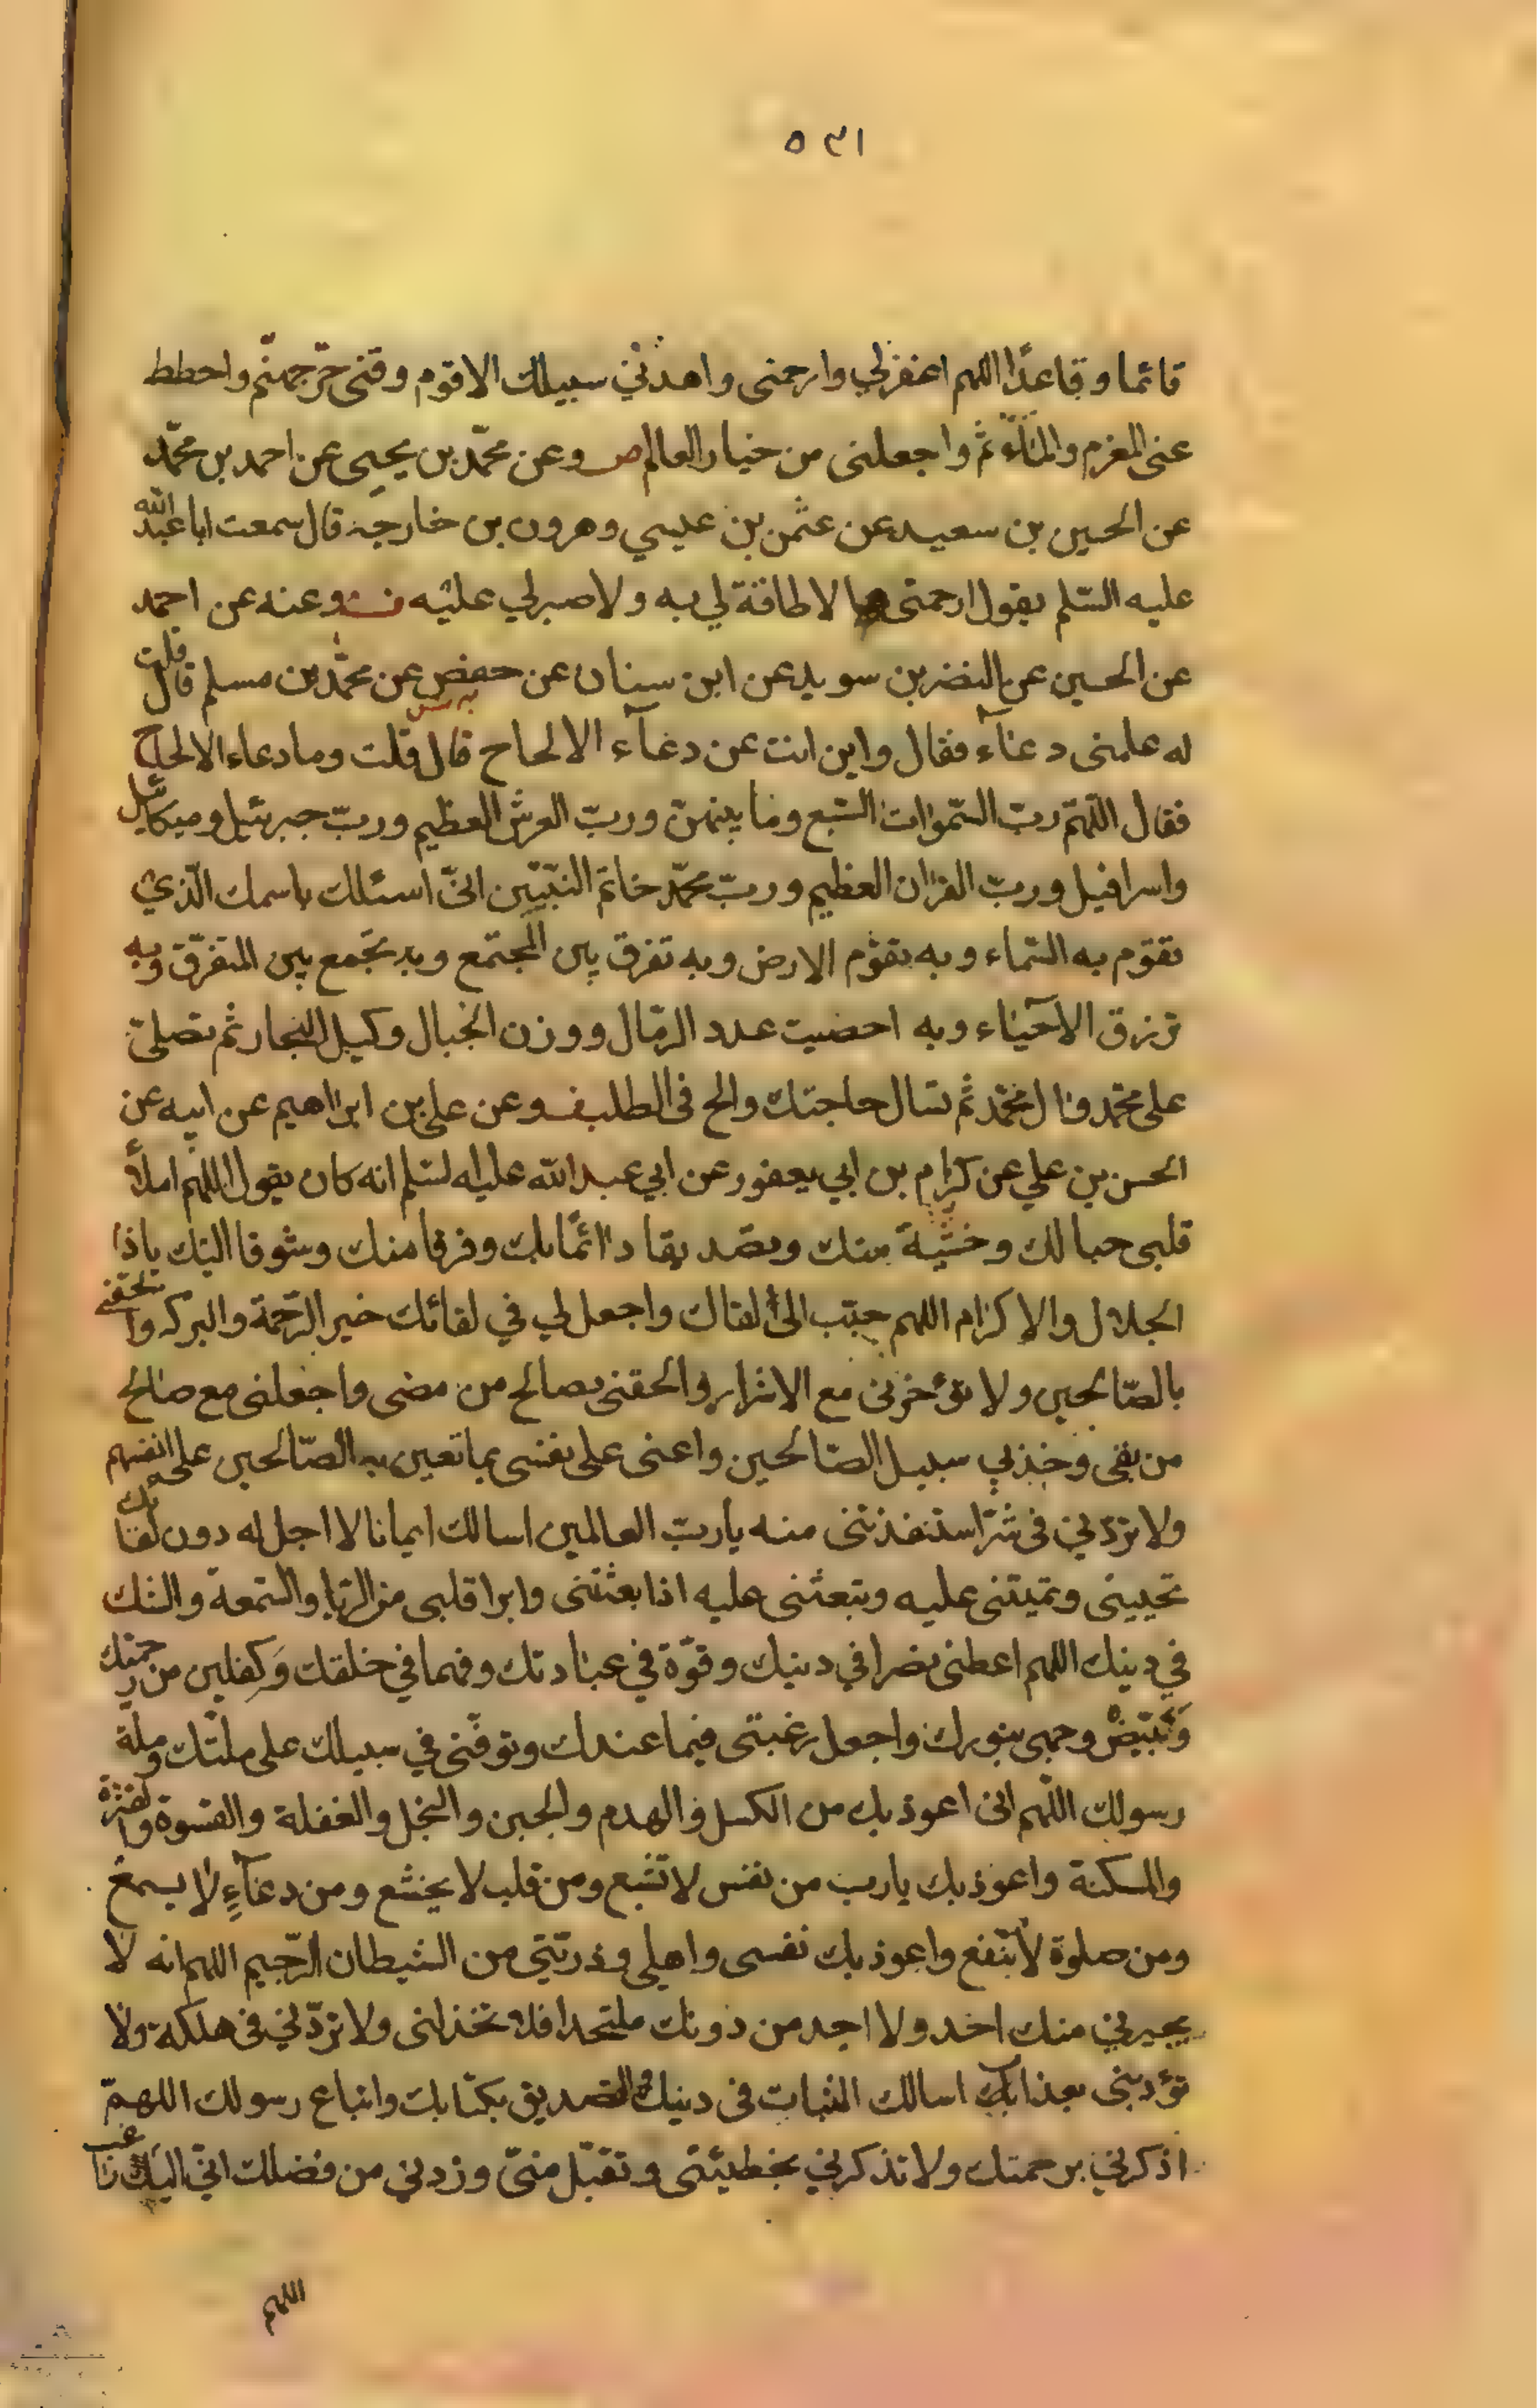 ٥٣١
قائما وقاعدًا اللهم اغفرلي وارحمنى واهدنى سبيلك الاقوم وقنى حرّ جهنّم واحطط
عنى المغرم والمأثم واجعلنى من خيار العالم وعن محمّد بن يحيى عن احمد بن محمّد
عن الحسين بن سعيد عن عثمن بن عيسي وهرون بن خارجة قال سمعت ابا عبد الله
عليه السّلم يقول ارحمنى مما لا طاقة لي به ولا صبر لي عليه وعنه عن احمد
عن الحسين عن النضر بن سويد عن ابن سينان عن حفص عن محمّد بن مسلم قال قلت
له علمنى دعآء فقال واين انت عن دعآء الالحاح قال قلت وما دعاء الالحاح
فقال اللّهمّ ربّ السّموات السّبع وما بينهنّ وربّ العرش العظيم وربّ جبرئيل وميكائيل
واسرافيل وربّ القران العظيم وربّ محمّد خاتم النبّيين انىّ اسئلك باسمك الّذي
تقوم به السّماء وبه تقوم الارض وبه تفرق بين المجتمع وبه تجمع بين المتفرّق وبه
ترزق الاحياء وبه احصيت عدد الرمّال ووزن الجبال وكيل البحار ثم تصلىّ
على محمّد وال محمّد ثم تسال حاجتك والح فى الطلب وعن على بن ابراهيم عن ابيه عن
الحسن بن علي عن كرام بن ابي يعفور عن ابي عبد الله عليه لسّلم انه كان يقول اللهم املأ
قلبى حبا لك وخشية منك وتصديقا دائمًا بك وفرقا منك وشوقا اليك ياذا
الجلال والاكرام اللهم حبّب الىّ لقاك واجعل لي في لقائك خير الرّحمة والبركه والحقنى
بالصّالحين ولا تؤخرنى مع الاشرار والحقنى بصالح من مضى واجعلنى مع صالح
من بقى وخذبي سبيل الصّالحين واعنى على نفسى بما تعين به الصّالحين على انفسهم
ولا تردّني فى شرّ استنقذتنى منه يا ربّ العالمين اسالك ايمانا لا اجل له دون لقائك
تحيينى وتميتنى عليه وتبعثنى عليه اذا بعثتنى وابرا قلبى من الرّيا والسّمعة والشك
في دينك اللهم اعطنى نصرا في دينك وقوّة في عبادتك وفهما في خلقك وكفلين من رحمتك
وَبَيّضْ وجهى بنورك واجعل رغبتى فيما عندك وتوفّنى في سبيلك على ملّتك وملّة
رسولك اللّهم انى اعوذ بك من الكسل والهدم والجبن والبخل والغفلة والقسوة والفترة
والمسكنة واعوذ بك يا رب من نفس لا تشبع ومن قلب لا يخشع ومن دعآءٍ لا يسمع
ومن صلوة لا تنفع واعوذ بك نفسى واهلي وذريّتي من الشيطان الرّجيم اللهم انه لا
يجيرني منك احد ولا اجد من دونك ملتحدا فلا تخذلنى ولا تردّني فى هلكة ولا
تؤدينى بعذابك اسالك الثبات فى دينك والتصديق بكتابك واتباع رسولك اللهمّ
اذكرني برحمتك ولا تذكرني بخطيئتى وتقبّل منىّ وزدني من فضلك انىّ اليك راغب
اللهم